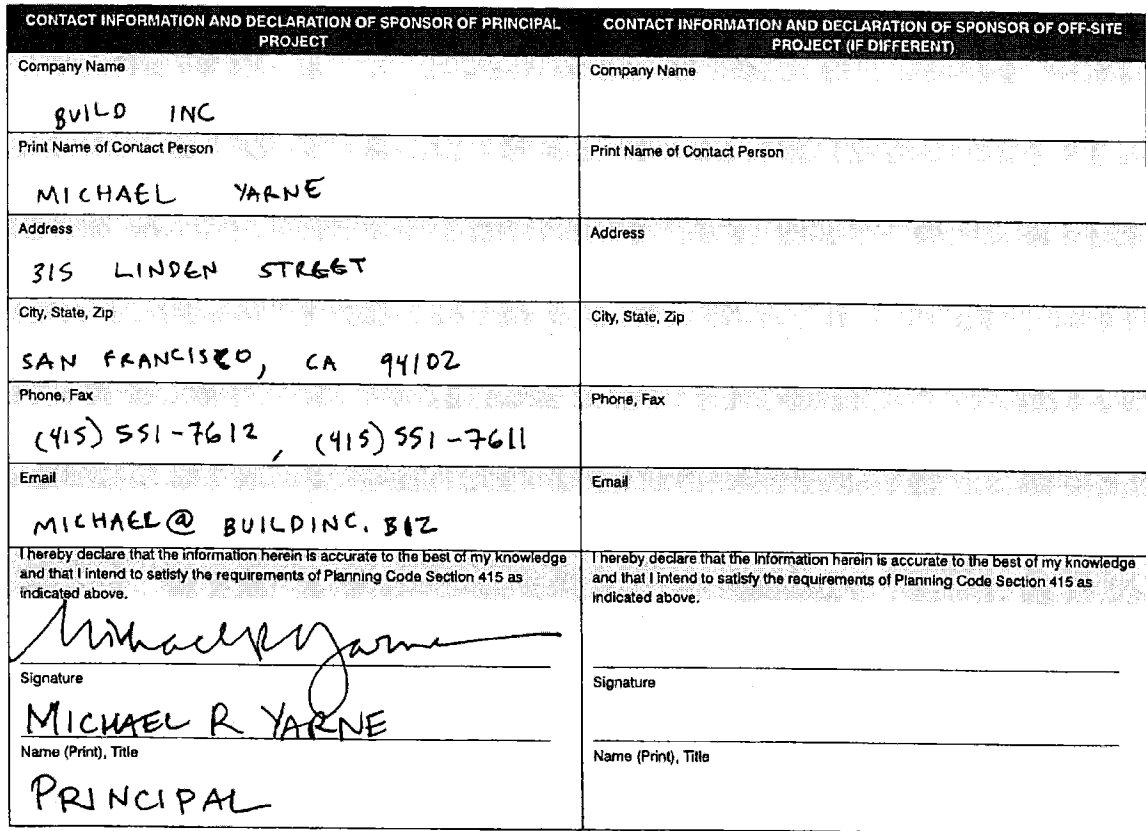 CONTACT INFORMATION AND DECLARATION OF SPONSOR OF PRINCIPAL
PROJECT
Company Name
BUILD INC
Print Name of Contact Person
MICHAEL YARNE
Address
315 LINDEN STREET
City, State, Zip
SAN FRANCISCO, CA 94102
Phone, Fax
(415) 551-7612, (415) 551-7611
Email
MICHAEL@BUILDINC.BIZ
I hereby declare that the information herein is accurate to the best of my knowledge
and that I intend to satisfy the requirements of Planning Code Section 415 as
indicated above.
Michael R Yarne
Signature
MICHAEL R YARNE
Name (Print), Title
PRINCIPAL
CONTACT INFORMATION AND DECLARATION OF SPONSOR OF OFF-SITE
PROJECT (IF DIFFERENT)
Company Name
Print Name of Contact Person
Address
City, State, Zip
Phone, Fax
Email
I hereby declare that the information herein is accurate to the best of my knowledge
and that I intend to satisfy the requirements of Planning Code Section 415 as
indicated above.
Signature
Name (Print), Title